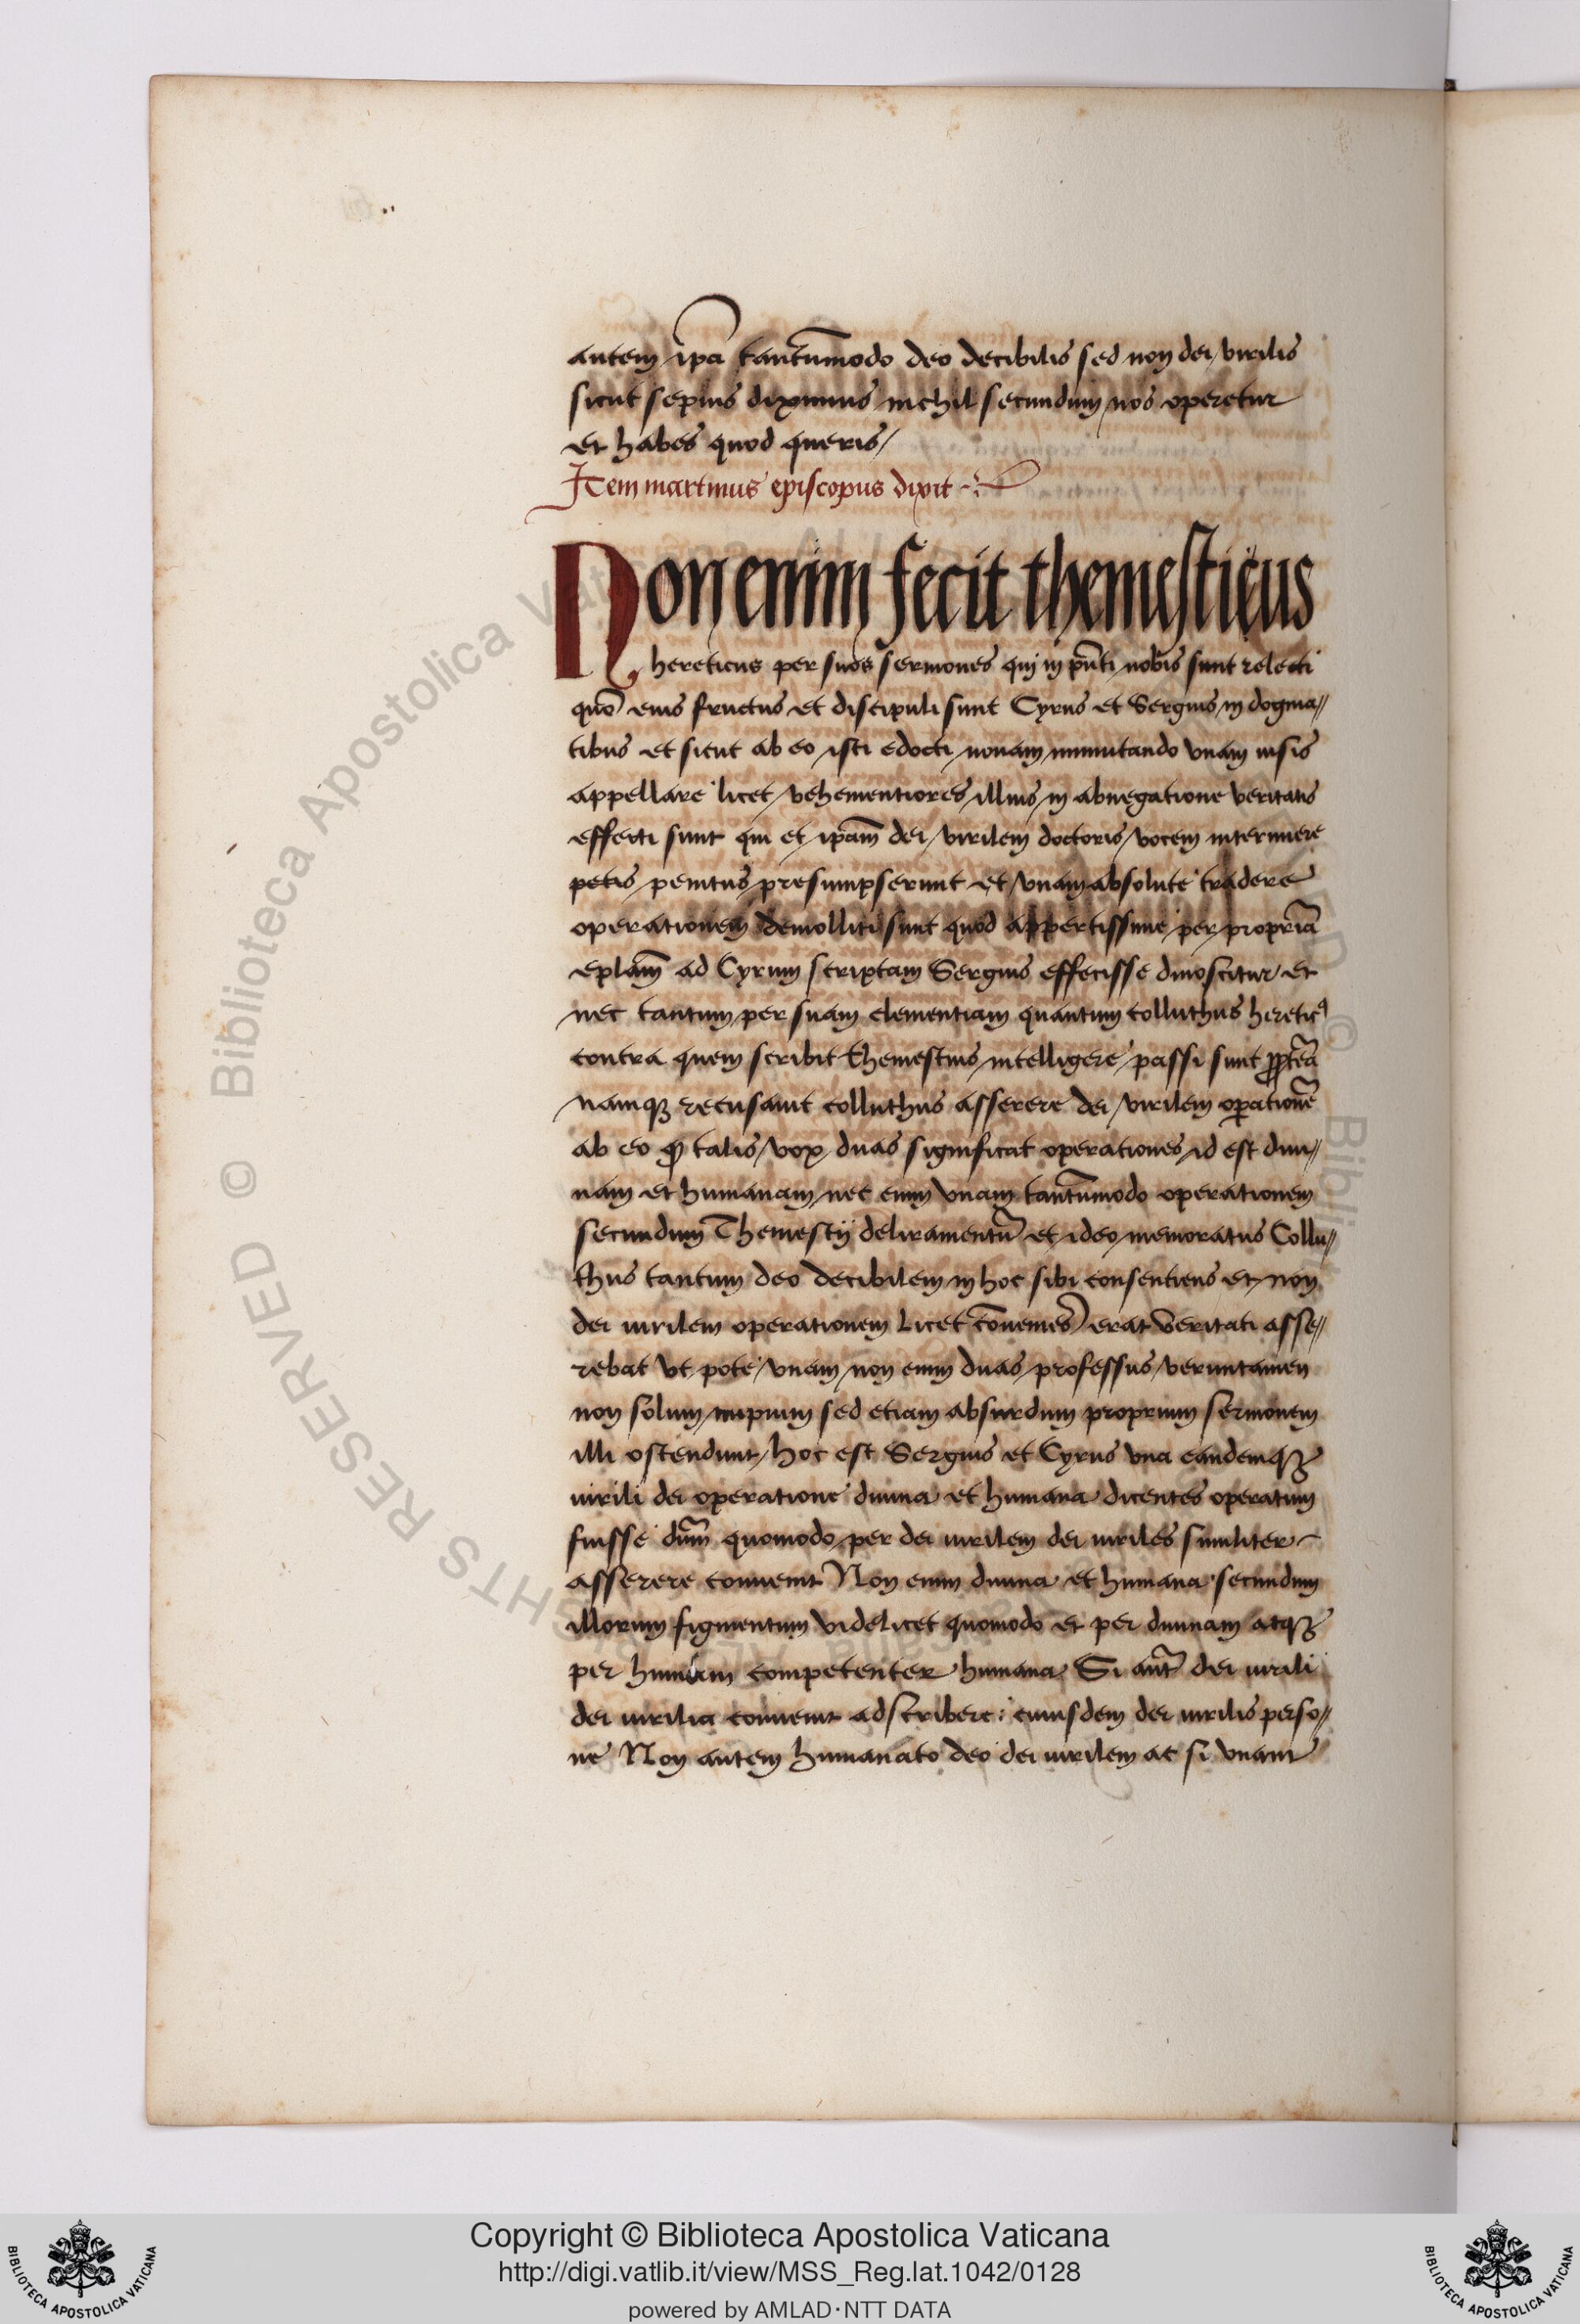 autem ip̄a tantūmodo deo decibilis sed non dei virilis
sicut sepius diximus nichil secundum nos operetur
et habes quod queris/
Item martinus episcopus dixit
Non enim fecit themesticus
hereticus per suos sermones qui in pn̄ti nobis sunt relecti
quō eius fructus et discipuli sunt Cyrus et Sergius in dogma//
tibus et sicut ab eo isti edocti nonam inmutando vnam
appellare licet vehementiores illius in abnegatione veritatis
effecti sunt qui et ip̄am dei virilem doctoris vocem interimere
penitus presumpserunt et vnam absolute tradere
operationem demolliti sunt quod appertissime per propriā
eplām ad Cyrum scriptam Sergius effecisse dinoscitur et
nec tantum per suam clementiam quantum colluthus heretic9
contra quem scribit themestius intelligere passi sunt
namq3 recusauit colluthus asserere dei virilem operationē
ab eo talis vox duas significat operationes id est diui//
nam et humanam nec enim vnam tantūmodo operationem
secundum Themestij deliramentū et ideo memoratus Collu//
thus tantum deo decibilem in hoc sibi consentiens et non
dei uirilem operationem licet erat veritati asse//
rebat vt pote vnam non enim duas professus veruntamen
non solum impium sed etiam absurdum proprium sermonem
illi ostendunt hoc est Sergius et Cyrus vna eandemq3
uirili dei operatione diuina et humana dicentes operatum
fuisse dūm quomodo per dei uirilem dei uiriles similiter
asserere conuenit Non enim diuina et humana secundum
illorum figmentum videlicet quomodo et per diuinam atq3
per competenter humana Si aut̄ dei uirili
dei uirilia conuenit adscribere: eiusdem dei uirilis perso//
ne Non autem humanato deo dei uirilem ac si vnam
© Biblioteca Apostolica Vaticana
RIGHTS RESERVED
Copyright © Biblioteca Apostolica Vaticana
http://digi.vatlib.it/view/MSS_Reg.lat.1042/0128
powered by AMLAD·NTT DATA
BIBLIOTECA APOSTOLICA VATICANA
BIBLIOTECA APOSTOLICA VATICANA